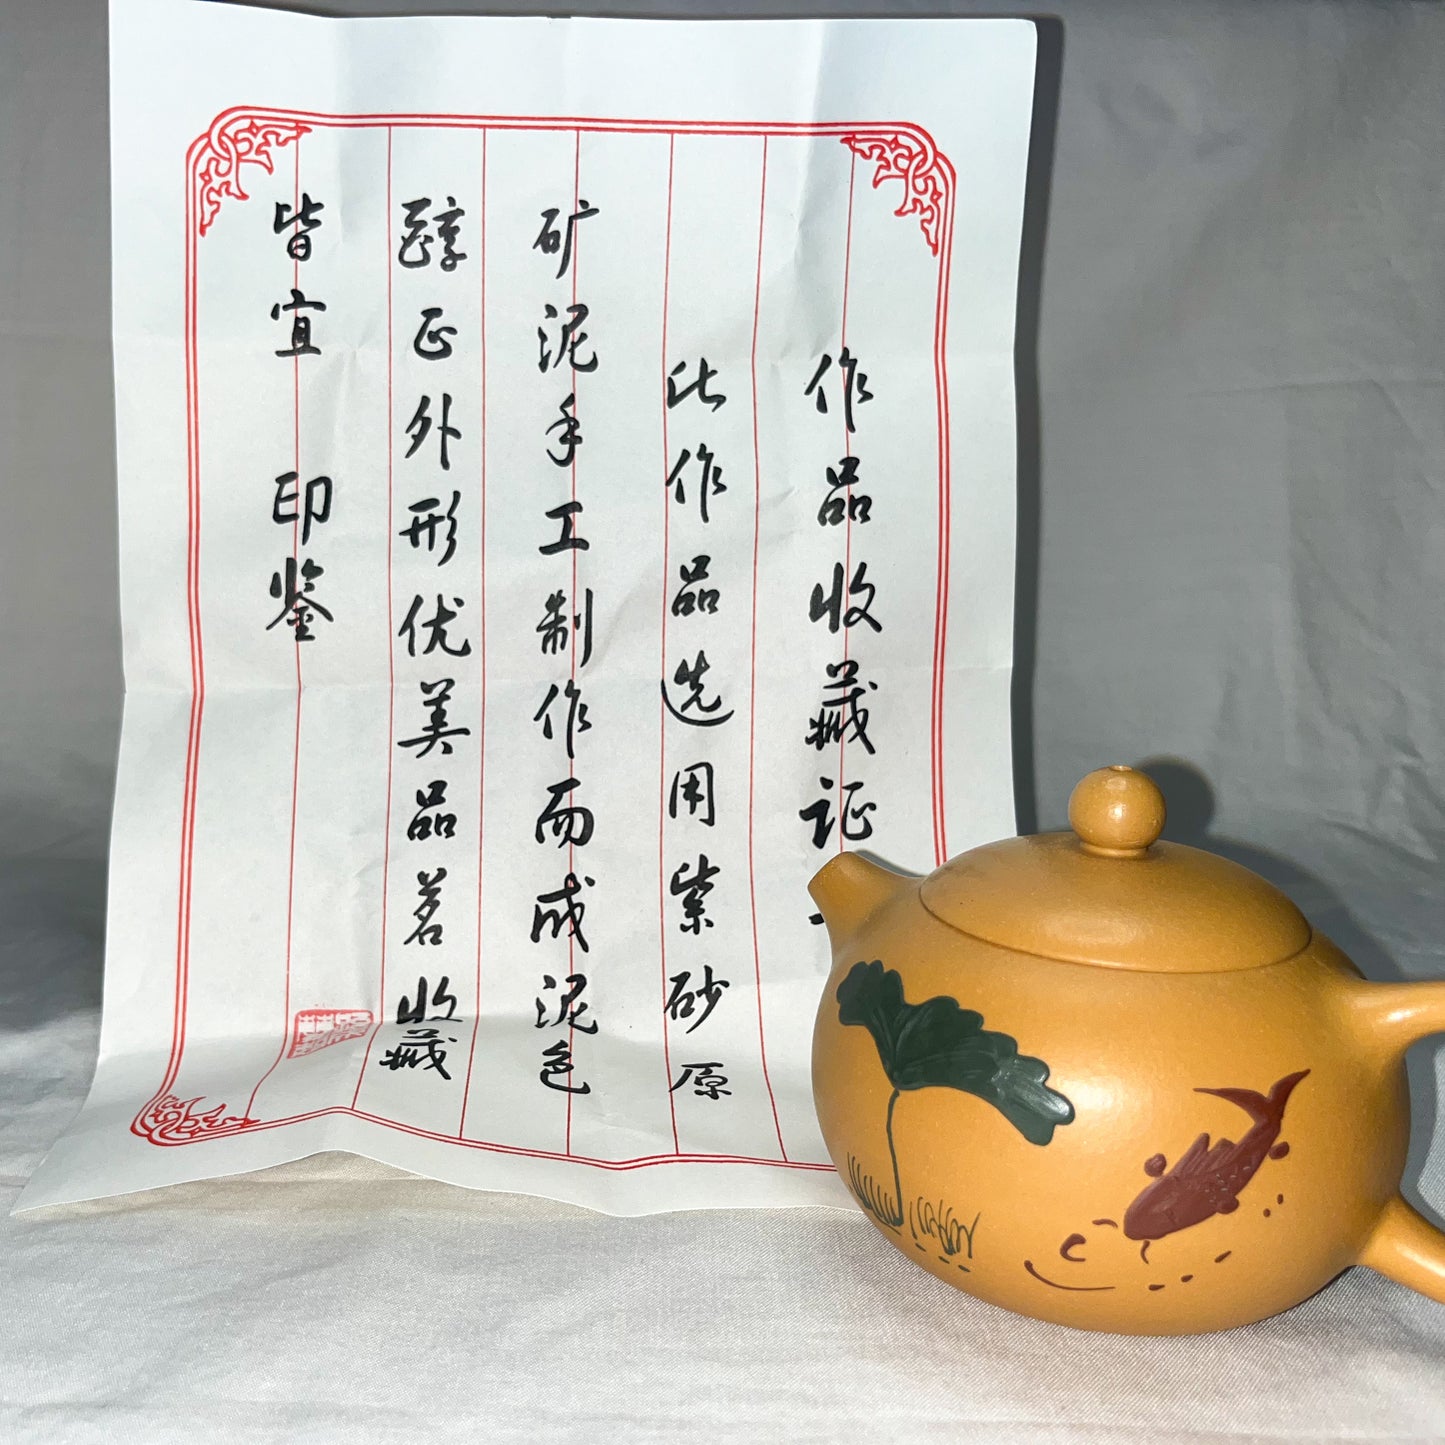 作品收藏证
此作品选用紫砂原
矿泥手工制作而成泥色
醇正外形优美品茗收藏
皆宜 印鉴